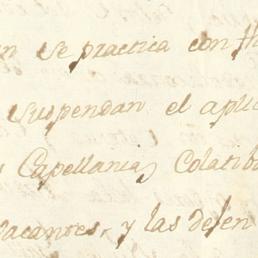 n se practica con
suspendan el apli
Capellanias Colatib
vacantes, y las dejen